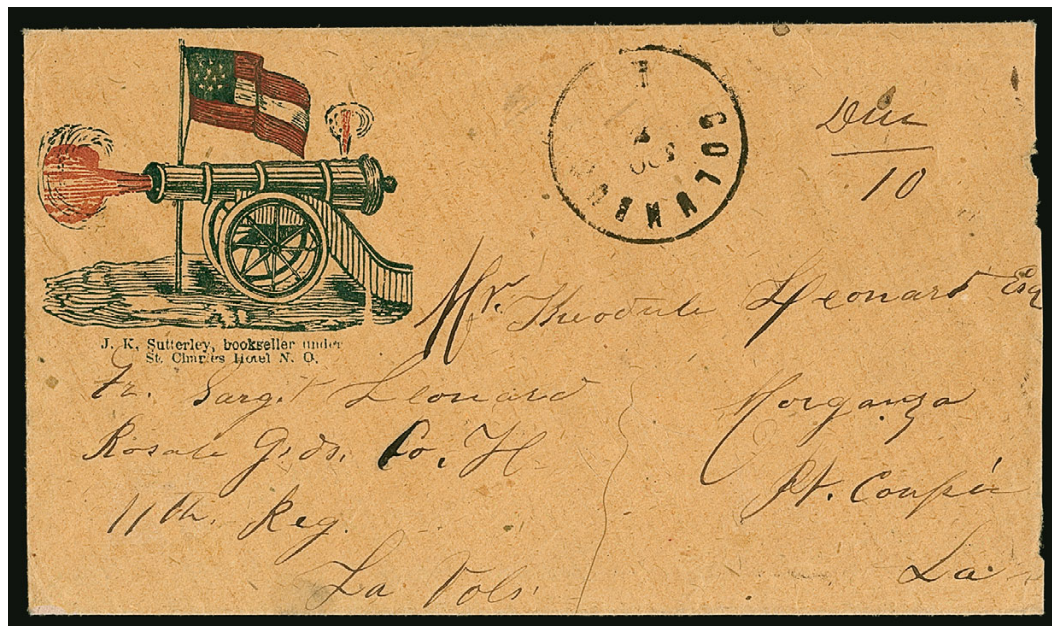 J. K. Sutterley, bookseller under
St. Charles Hotel N. O.
COLUMBUS
Due
10
Mr. Theodule Leonard Esq
Morganza
Pt. Coupée
La
Fr. Sargt Leonard
Rosale Gds. Co. H
11th. Reg.
La Vols.